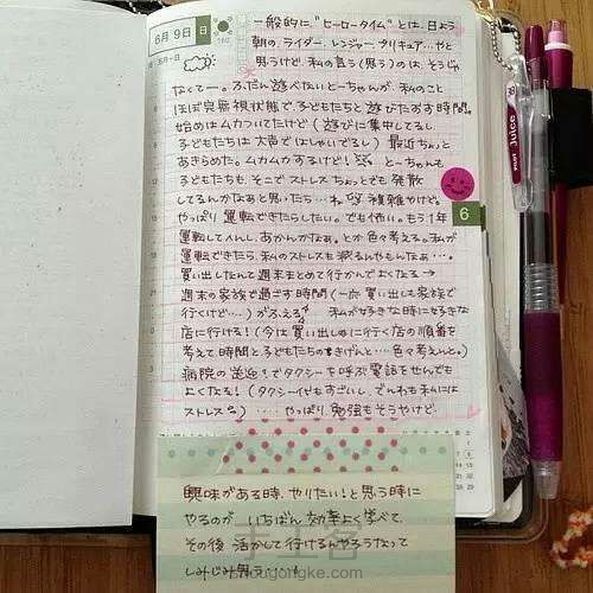 6月 9日 日
160
一般的に"ヒーロータイム"とは、日よう
朝の、ライダー、レンジャー、プリキュア…やと
思うけど、私の言う(思う)のは、そうじゃ
なくてー。ふだん遊べないとーちゃんが、私のこと
ほぼ完無視状態で、子どもたちと遊びたおす時間。
始めはムカついてたけど(遊びに集中してるし
子どもたちは大声ではしゃいでるし) 最近ちょっと
あきらめた。ムカムカするけど! とーちゃんも
子どもたちも、そこでストレスちょっとでも発散
してるんかなぁと思いだ…ね 複雑やけど。
やっぱり運転できたらしたい。でも怖い。もう1年
運転してへんし、あかんかなぁ。とか色々考える。私が
運転できたら、私のストレスも減るんやもんなぁ…。
買い出しだんて週末まとめて行かんでよくなる→
週末の家族で過ごす時間(一応 買い出しも家族で
行くけど…)がふえる 私が好きな時に好きな
店に行ける!(今は買い出しに行く店の順番を
考えて時間と子どもたちのきげんと…色々考えんと。)
病院の送迎でタクシーを呼ぶ電話をせんでも
よくなる!(タクシー代もすごいし、でんわも私には
ストレス) …. やっぱり、勉強もそうやけど
6
PILOT Juice
興味がある時、やりたい!と思う時に
やるのが いちばん 効率よく学べて、
その後 活かして行けるんやろうなって
しみじみ思う….!
手工客
shougongke.com